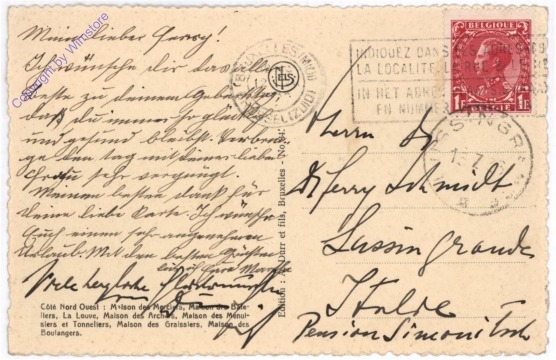 Mein lieber Ferry!
Ich wünsche dir das aller-
beste zu deinem Geburtstag,
daß du immer so glücklich
und gesund bleibst. Verbrin-
ge den Tag mit deiner lieben
Frau sehr vergnügt.
Meinen besten Dank für
deine liebe Karte. Ich wünsche
Euch einen sehr angenehmen
Urlaub. Mit den besten Grüßen
Viele herzliche
Côté Nord Ouest : Maison des Merciers, Maison des Bate-
liers, La Louve, Maison des Archers, Maison des Menui-
siers et Tonneliers, Maison des Graissiers, Maison des
Boulangers.
et fils, Bruxelles - No.
BRUXELLES
INDIQUEZ DANS
LA LOCALITE
IN HET ADRES
EN NUMMER
BELGIQUE
1 F
1 F
BELGIE
Herrn
Ferry Schmidt
Lussingrande
Italie
Pension Simonitsch
Copyright by Wimstore